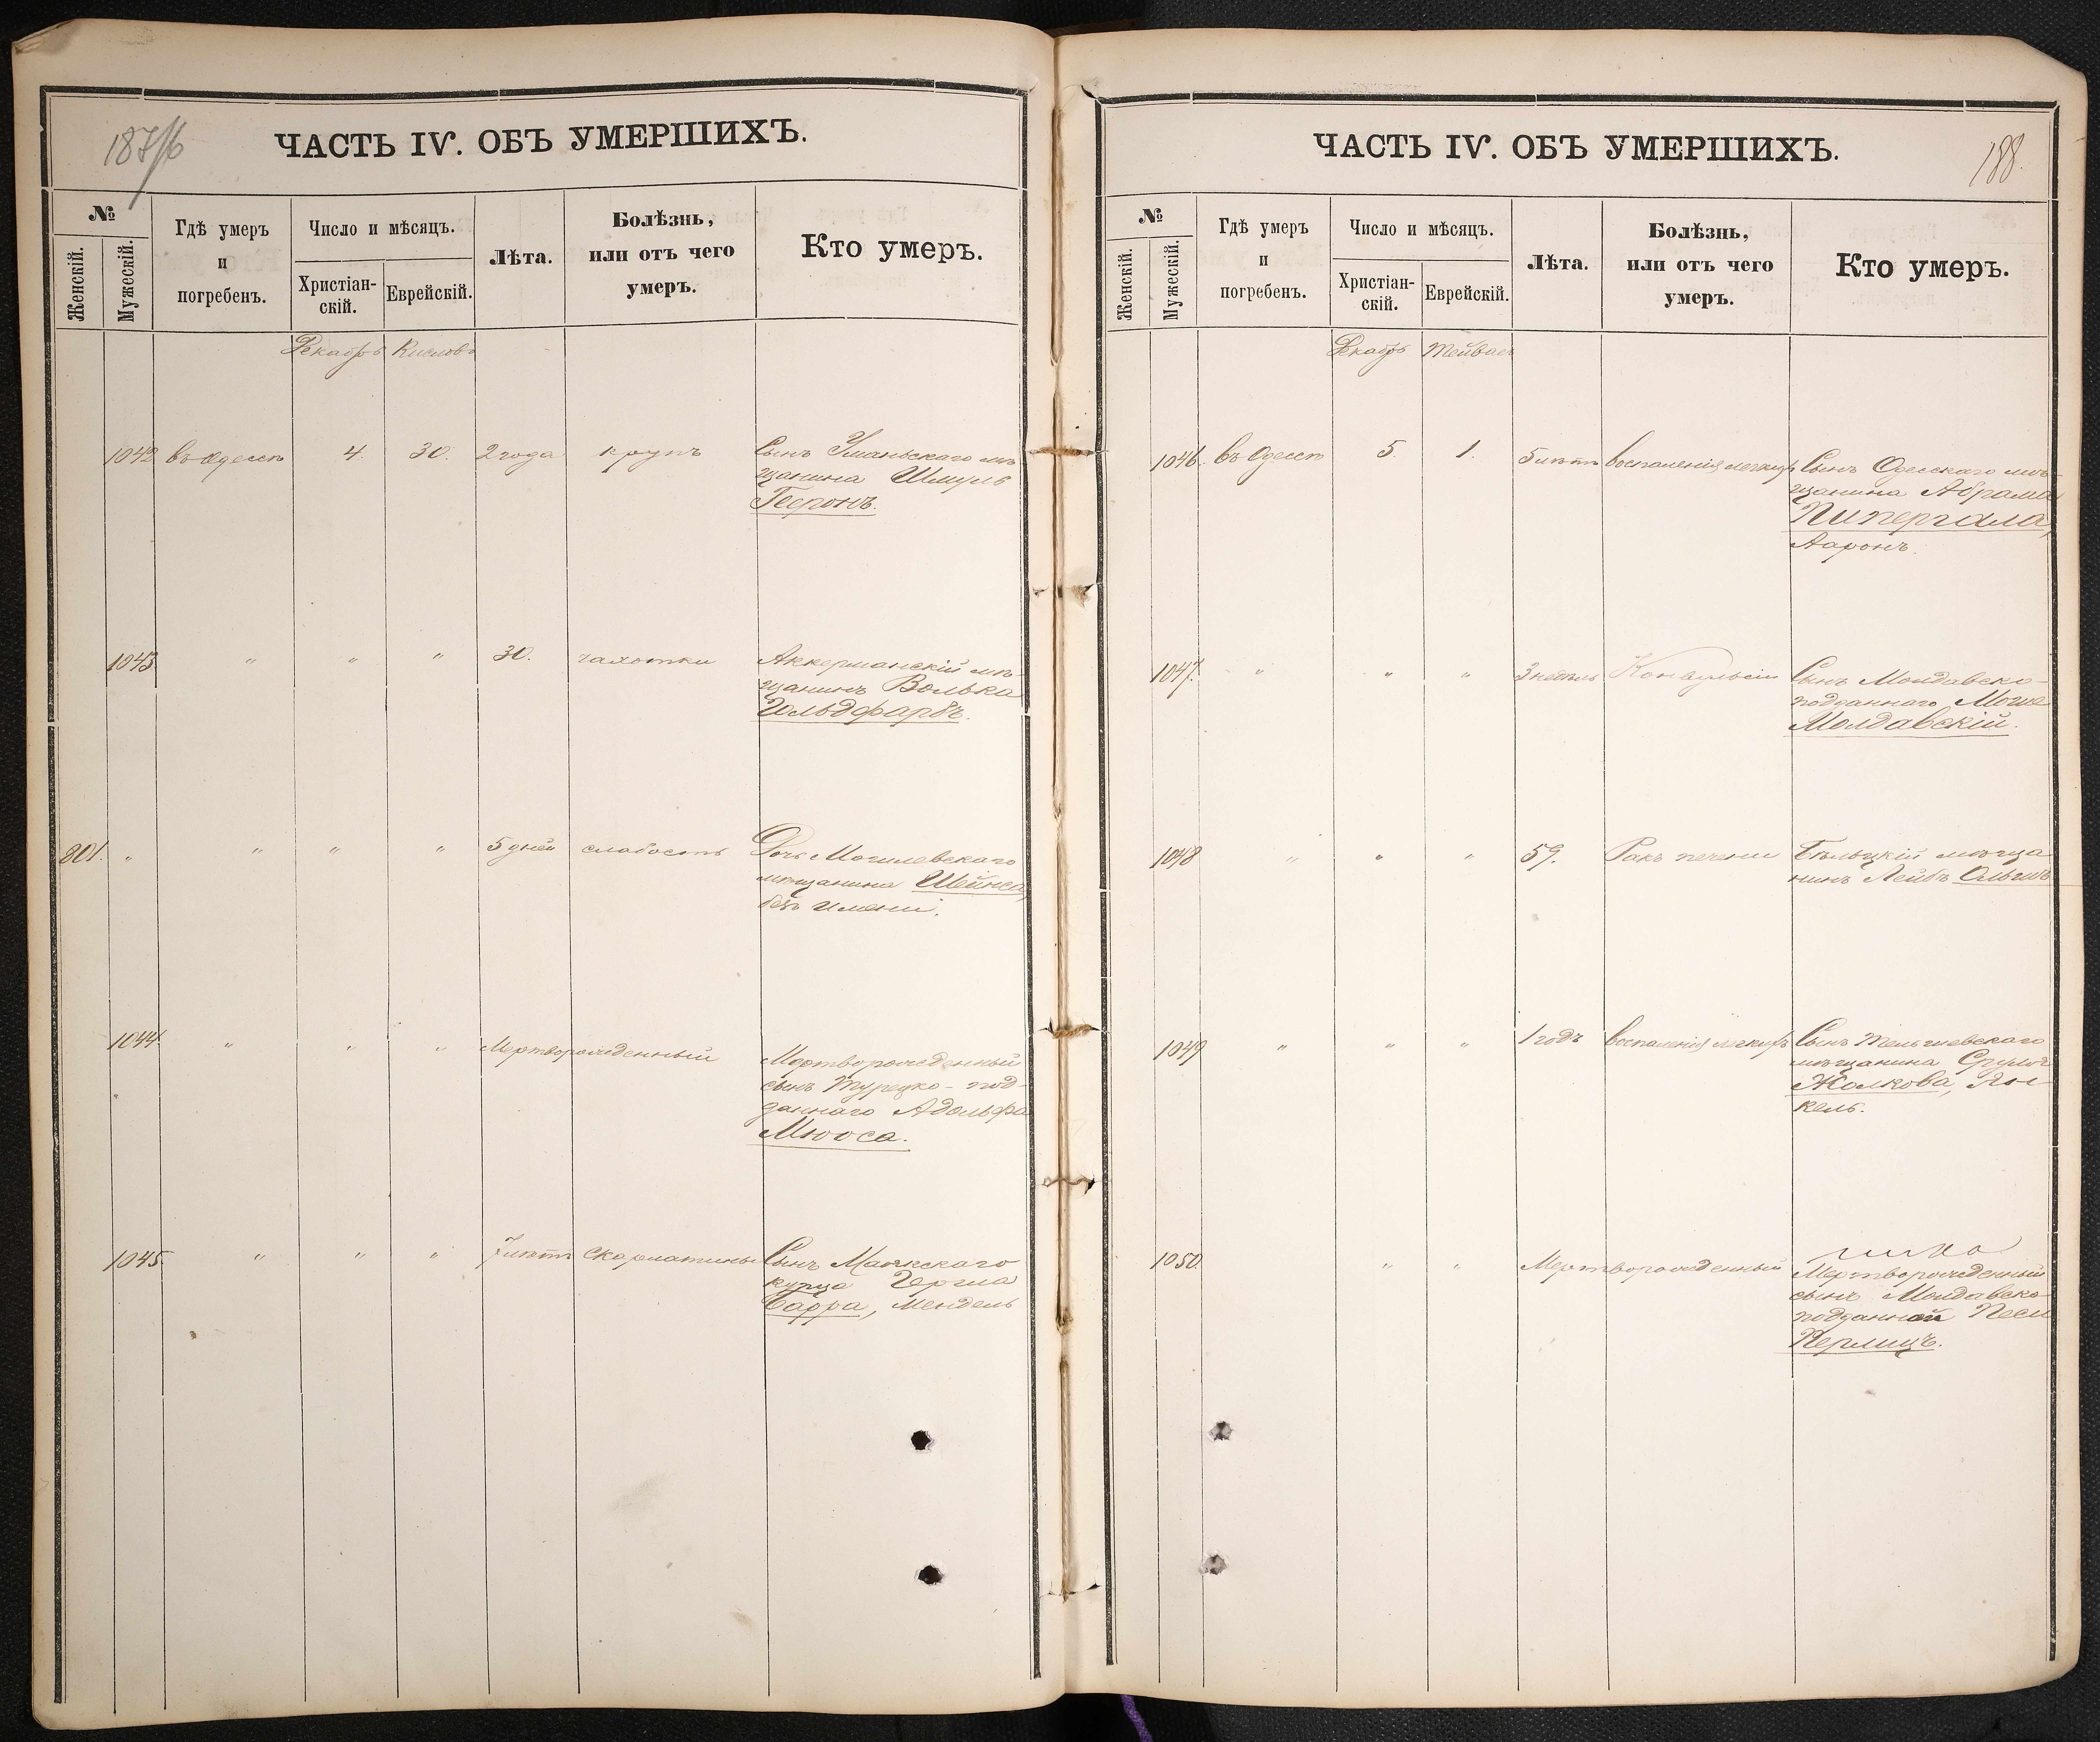 ЧАСТЬ IV. ОБЪ УМЕРШИХЪ.
№
Женскій.
Мужескій.
Гдѣ умеръ
и
погребенъ.
Число и мѣсяцъ.
Христіан-
скій.
Еврейскій.
Лѣта.
Болѣзнь,
или отъ чего
умеръ.
Кто умеръ.
Декабрь Кислевъ
1042 въ Одессѣ 4. 30. 2 года крупъ Сынъ Уманьскаго мѣ-
щанина Шмуль
Геронъ.
1043 " " " 30. чахотки Аккерманскій мѣ-
щанинъ Волька
Гольдфарбъ.
801. " " " " 5 дней слабость Дочь Могилевскаго
мѣщанина Шейнса,
безъ имени.
1044 " " " Мертворожденный Мертворожденный
сынъ Турецко-под-
даннаго Адольфа
Мюоса.
1045 " " " 7 лѣтъ Скорлатины Сынъ Маякскаго
купца
Барра, Мендель
ЧАСТЬ IV. ОБЪ УМЕРШИХЪ.
188.
№
Женскій.
Мужескій.
Гдѣ умеръ
и
погребенъ.
Число и мѣсяцъ.
Христіан-
скій.
Еврейскій.
Лѣта.
Болѣзнь,
или отъ чего
умеръ.
Кто умеръ.
Декабрь Тейвасъ
1046. въ Одессѣ 5. 1. 5 лѣтъ воспаленія легкихъ Сынъ Одесскаго мѣ-
щанина Абрама
Пипергала,
Ааронъ.
1047. " " " 3 недѣль Конвульсіи Сынъ Молдавско-
подданнаго Моше
Молдавскій.
1048 " " " 59. Ракъ печени Бѣльцкій мѣща-
нинъ Лейбъ
1049 " " " 1 годъ воспаленія легкихъ Сынъ Тельшевскаго
мѣщанина Срулія
Жолкова, Ян-
кель.
1050. " " Мертворожденный
Мертворожденный
сынъ Молдавско-
подданной Песи
Перлицъ.